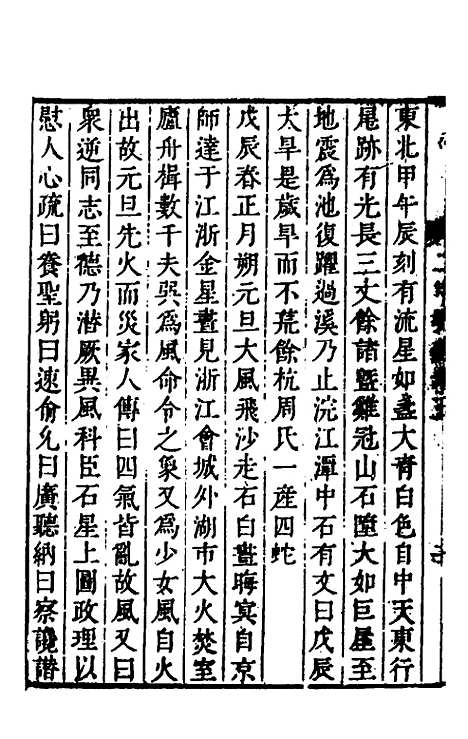 東北甲午辰刻有流星如盞大青白色自中天東行
尾跡有光長三丈餘諸暨雞冠山石墮大如巨屋至
地震爲池復躍過溪乃止浣江潭中石有文曰戊辰
太旱是歲旱而不荒餘杭周氏一産四蛇
戊辰春正月朔元旦大風飛沙走石白晝晦冥自京
師達于江浙金星晝見浙江會城外湖市大火焚室
廬舟楫數千夫巽爲風命令之象又爲少女風自火
出故元旦先火而災家人傳曰四氣皆亂故風又曰
衆逆同志至德乃潜厥異風科臣石星上圖政理以
慰人心疏曰養聖躬曰速俞允曰廣聽納曰察讒譖